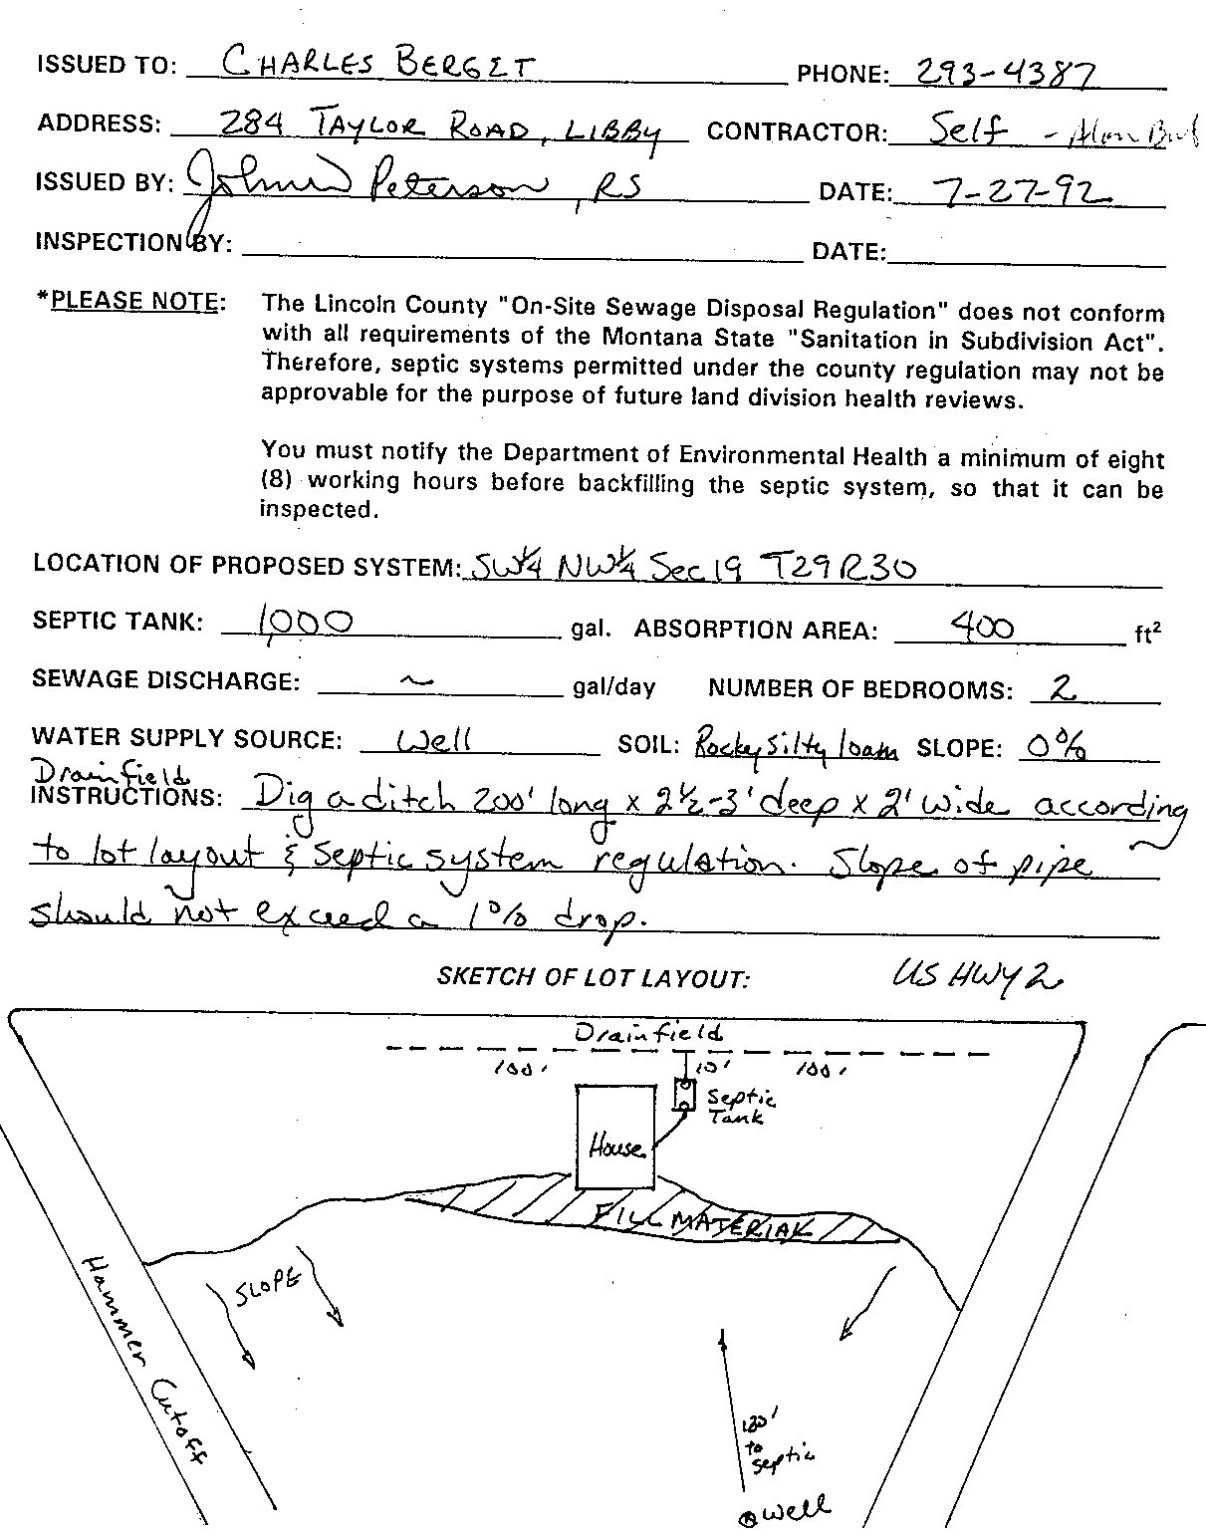 ISSUED TO: CHARLES BERGET PHONE: 293-4387
ADDRESS: 284 TAYLOR ROAD, LIBBY CONTRACTOR: Self - Alan
ISSUED BY: Peterson, RS DATE: 7-27-92
INSPECTION BY: DATE:
*PLEASE NOTE: The Lincoln County "On-Site Sewage Disposal Regulation" does not conform
with all requirements of the Montana State "Sanitation in Subdivision Act".
Therefore, septic systems permitted under the county regulation may not be
approvable for the purpose of future land division health reviews.
You must notify the Department of Environmental Health a minimum of eight
(8) working hours before backfilling the septic system, so that it can be
inspected.
LOCATION OF PROPOSED SYSTEM: SW¼ NW¼ Sec 19 T29 R30
SEPTIC TANK: 1,000 gal. ABSORPTION AREA: 400 ft²
SEWAGE DISCHARGE: ~ gal/day NUMBER OF BEDROOMS: 2
WATER SUPPLY SOURCE: Well SOIL: Rocky silty loam SLOPE: 0%
Drainfield
INSTRUCTIONS: Dig a ditch 200' long x 2½-3' deep x 2' wide according
to lot layout & septic system regulation. Slope of pipe
should not exceed a 1% drop.
SKETCH OF LOT LAYOUT: US HWY 2
Drainfield
100' 10' 100'
Septic
Tank
House
FILL MATERIAL
SLOPE
Hammer Cutoff
to
septic
Well